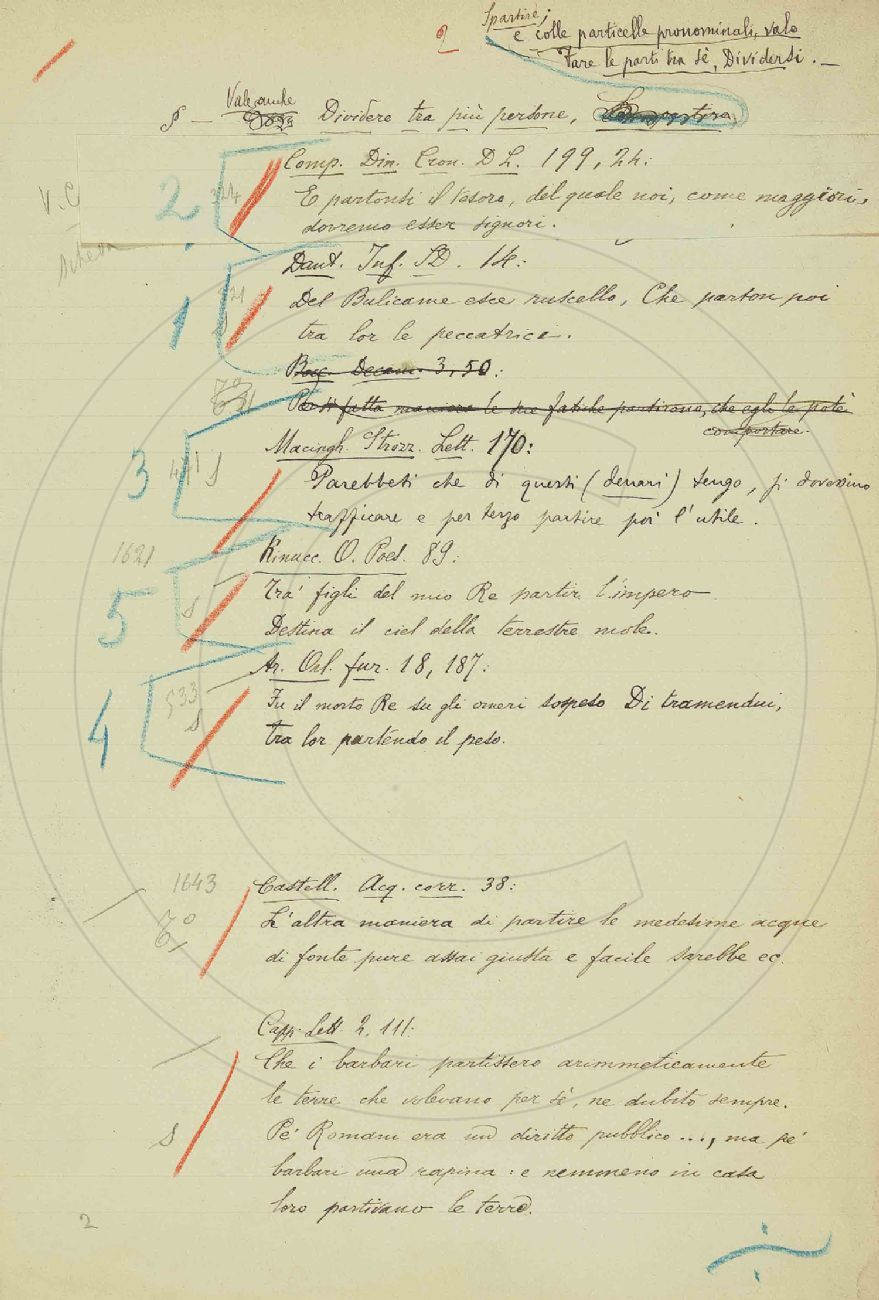 2
Spartire;
e colle particelle pronominali, vale
Fare le parti tra sè, Dividersi. —
§ — Vale anche Dividere tra più persone,
Comp. Din. Cron. D L. 199, 24:
V. C
2
324
E partonsi il tesoro, del quale noi, come maggiori,
dovremo esser signori.
scheda
Dant. Inf. SD. 14:
1
S
Del Bulicame esce ruscello, Che parton poi
tra lor le peccatrici.
Bocc. Decam. 3, 50:
Per sì fatta maniera le sue fatiche partirono, che egli le potè
comportare.
Macingh. Strozz. Lett. 170:
3
S
Parebbeti che di questi (denari) tengo, si dovessino
trafficare e per terzo partire poi l'utile.
1621
Rinucc. O. Poes. 89:
5
S
Tra' figli del mio Re partir l'impero
Destina il ciel della terrestre mole.
Ar. Orl. fur. 18, 187:
4
533
S
Fu il morto Re su gli omeri sospeso Di tramendui,
tra lor partendo il peso.
1643
Castell. Acq. corr. 38:
L'altra maniera di partire le medesime acque
di fonte pure assai giusta e facile sarebbe ec.
Capp. Lett. 2. 111:
Che i barbari partissero arimmeticamente
le terre che volevano per sè, ne dubito sempre.
S
Pe' Romani era un diritto pubblico ..., ma pe'
barbari una rapina: e nemmeno in casa
loro partivano le terre.
2